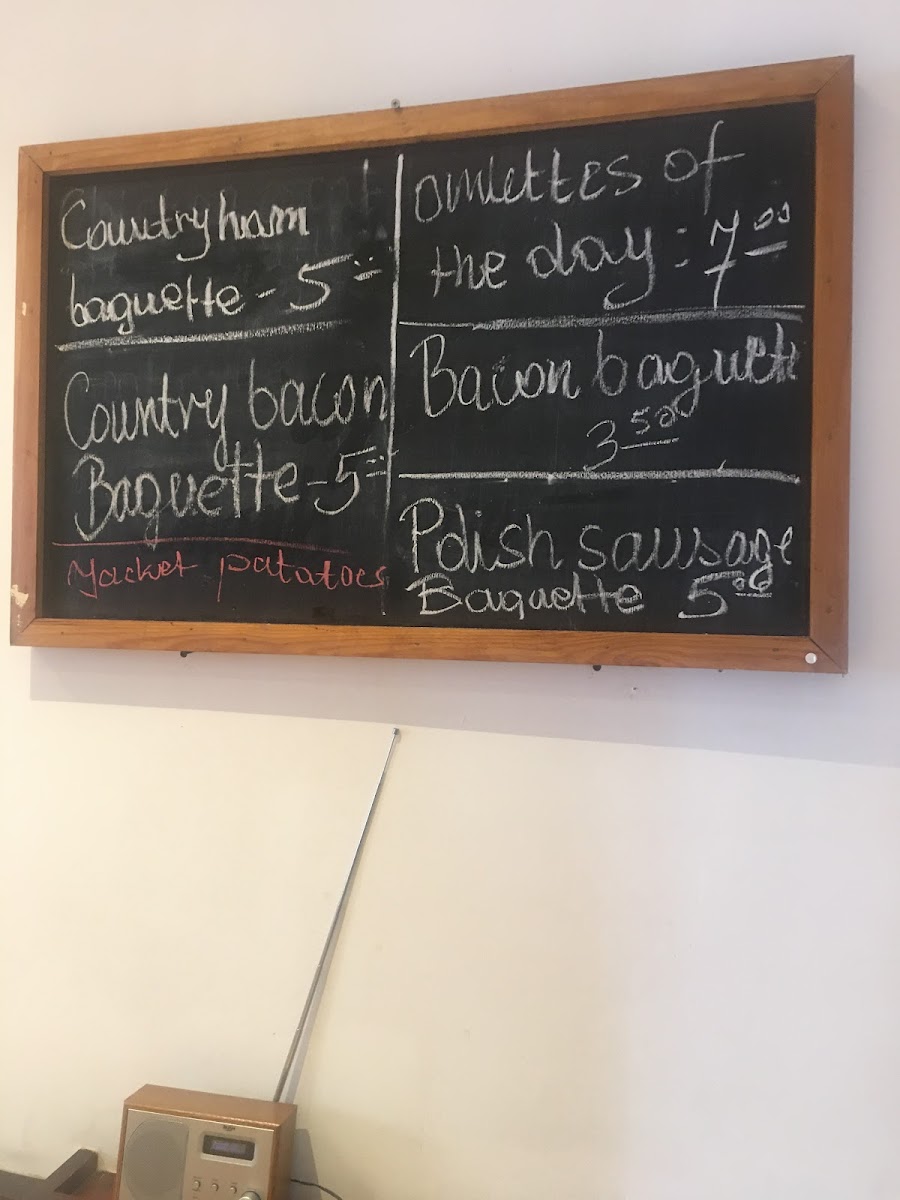 Country ham
baguette - 5.00
Country bacon
Baguette - 5.00
Jacket patatoes
omlettes of
the day : 7.00
Bacon baguette
3.50
Polish sausage
Baguette 5.00